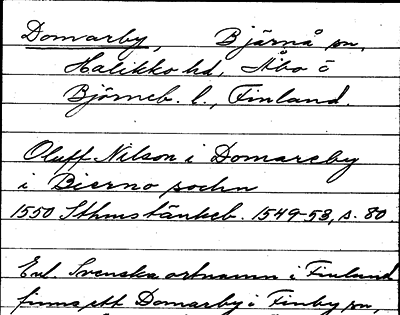 Domarby, Bjärnå sn,
Halikko hd, Åbo o
Björneb. l., Finland.
Oluff Nilson i Domareby
i Bierno sochn
1550 Sthms tänkeb. 1549-53, s. 80.
Enl. Svenska ortnamn i Finland
finns ett Domarby i Finby sn,